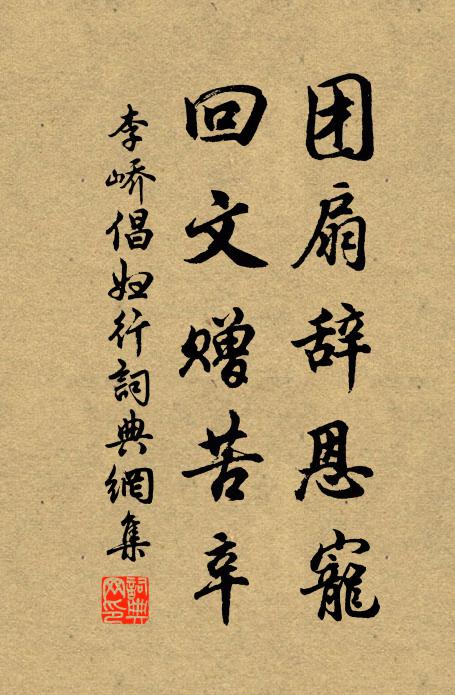 团扇辞恩寵
回文赠苦辛
李嶠倡妇行詞典網集
詞典網印